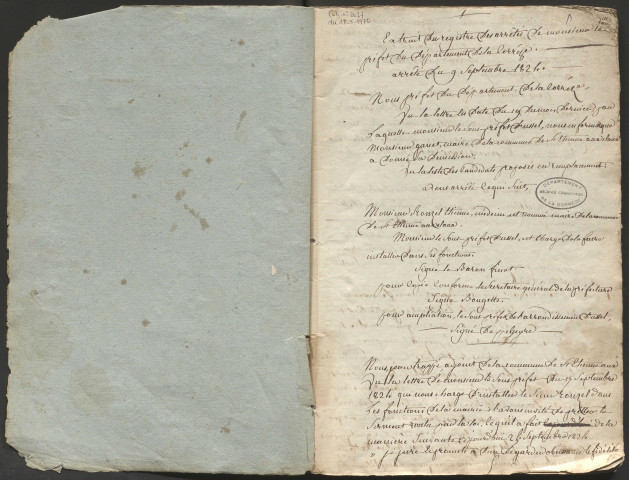 1
Extrait du registre des arrêtés de monsieur le
préfet du département de la Corrèze.
arrêté du 9 Septembre 1824.
Nous préfet du département de la Corrèze,
Vu la lettre en date du 19 du mois dernier, par
laquelle monsieur le Sous-préfet d'ussel, nous informe que
Monsieur maire de la commune de St Etienne aux claux
a donné sa démission.
Vu la liste des candidats proposés en remplacement.
avons arrêté ce qui Suit,
DÉPARTEMENT
DE LA CORRÈZE
Monsieur Etienne, médecin est nommé maire de la commune
de St Etienne aux claux.
Monsieur le Sous-préfet d'ussel, est chargé de le faire
installer dans ses fonctions.
Signé le Baron finot
pour copie conforme le Secrétaire général de la préfecture
Signé
pour ampliation, le Sous-préfet de l'arrondissement d'ussel,
Signé
Nous, adjoint de la commune de St Etienne aux
Vu la lettre de monsieur le Sous-préfet du 19 Septembre
1824 qui nous charge d'installer le Sieur dans
les fonctions de la mairie et de
Serment voulu par la loi, lequel a fait de la
manière Suivante, ce jourd'hui 26 Septembre 1824
" je jure et promets à Dieu de garder obéissance et fidélité